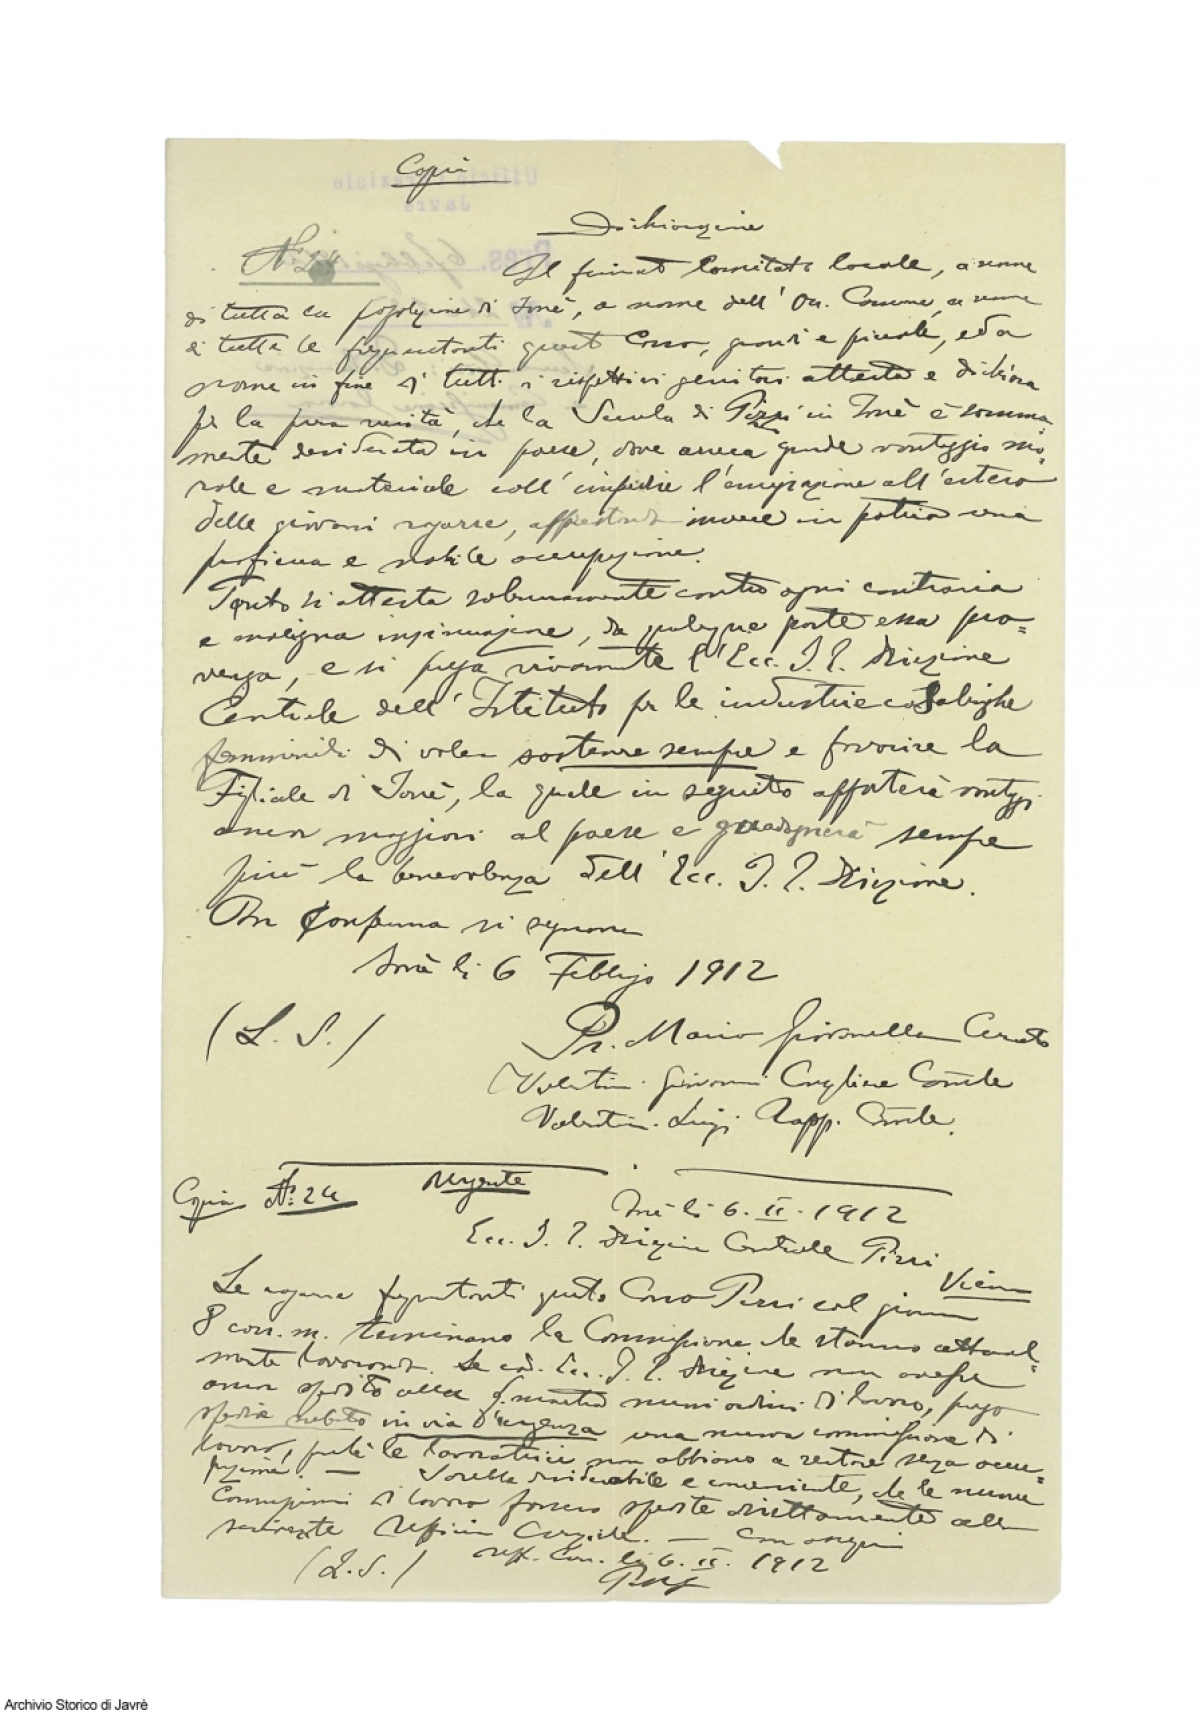 Copia
Dichiarazione
N. 24
Il firmato Comitato locale, a nome
di tutta la popolazione di Javrè, a nome dell' On. Comune, a nome
di tutte le frequentanti questo Corso, grandi e piccole, ed a
nome in fine di tutti i rispettivi genitori attesta e dichiara
per la pura verità, che la Scuola di Pizzi in Javrè è somma=
mente desiderata in paese, dove arreca grande vantaggio mo=
rale e materiale coll' impedire l'emigrazione all' estero
delle giovani ragazze, apprestando invece in patria una
proficua e nobile occupazione.
Tanto si attesta solennemente contro ogni contraria
e maligna insinuazione, da qualunque parte essa pro=
venga, e si prega vivamente l'Ecc. I. R. Direzione
Centrale dell' Istituto per le industrie casalinghe
femminili di voler sostenere sempre e favorire la
Filiale di Javrè, la quale in seguito apporterà vantaggi
ancor maggiori al paese e guadagnerà sempre
più la benevolenza dell' Ecc. I. R. Direzione.
Per conferma si segnano
Javrè li 6 Febbraio 1912
(L. S.)
Pr. Mario Giovanella Curato
Valentin. Giovanni Consigliere Comle
Valentin. Luigi Rapp. Comle.
Copia N. 24 Urgente
Javrè li 6. II. 1912
Ecc. I. R. Direzione Centrale Pizzi
Vienna
Le ragazze frequentanti questo Corso Pizzi col giorno
8 corr. m. terminano la Commissione che stanno attual=
mente lavorando. Se cod. Ecc. I. R. Direzione non avesse
ancor spedito alla nuovi ordini di lavoro, prego
spedire subito in via d'urgenza una nuova commissione di
lavoro, perchè le lavoratrici non abbiano a restare senza occu=
pazione. — Sarebbe desiderabile e conveniente, che le nuove
Commissioni di lavoro fossero spedite direttamente allo
scrivente Ufficio Curaziale. — Con ossequi
Uff. Cur. li 6. II. 1912
(L. S.)